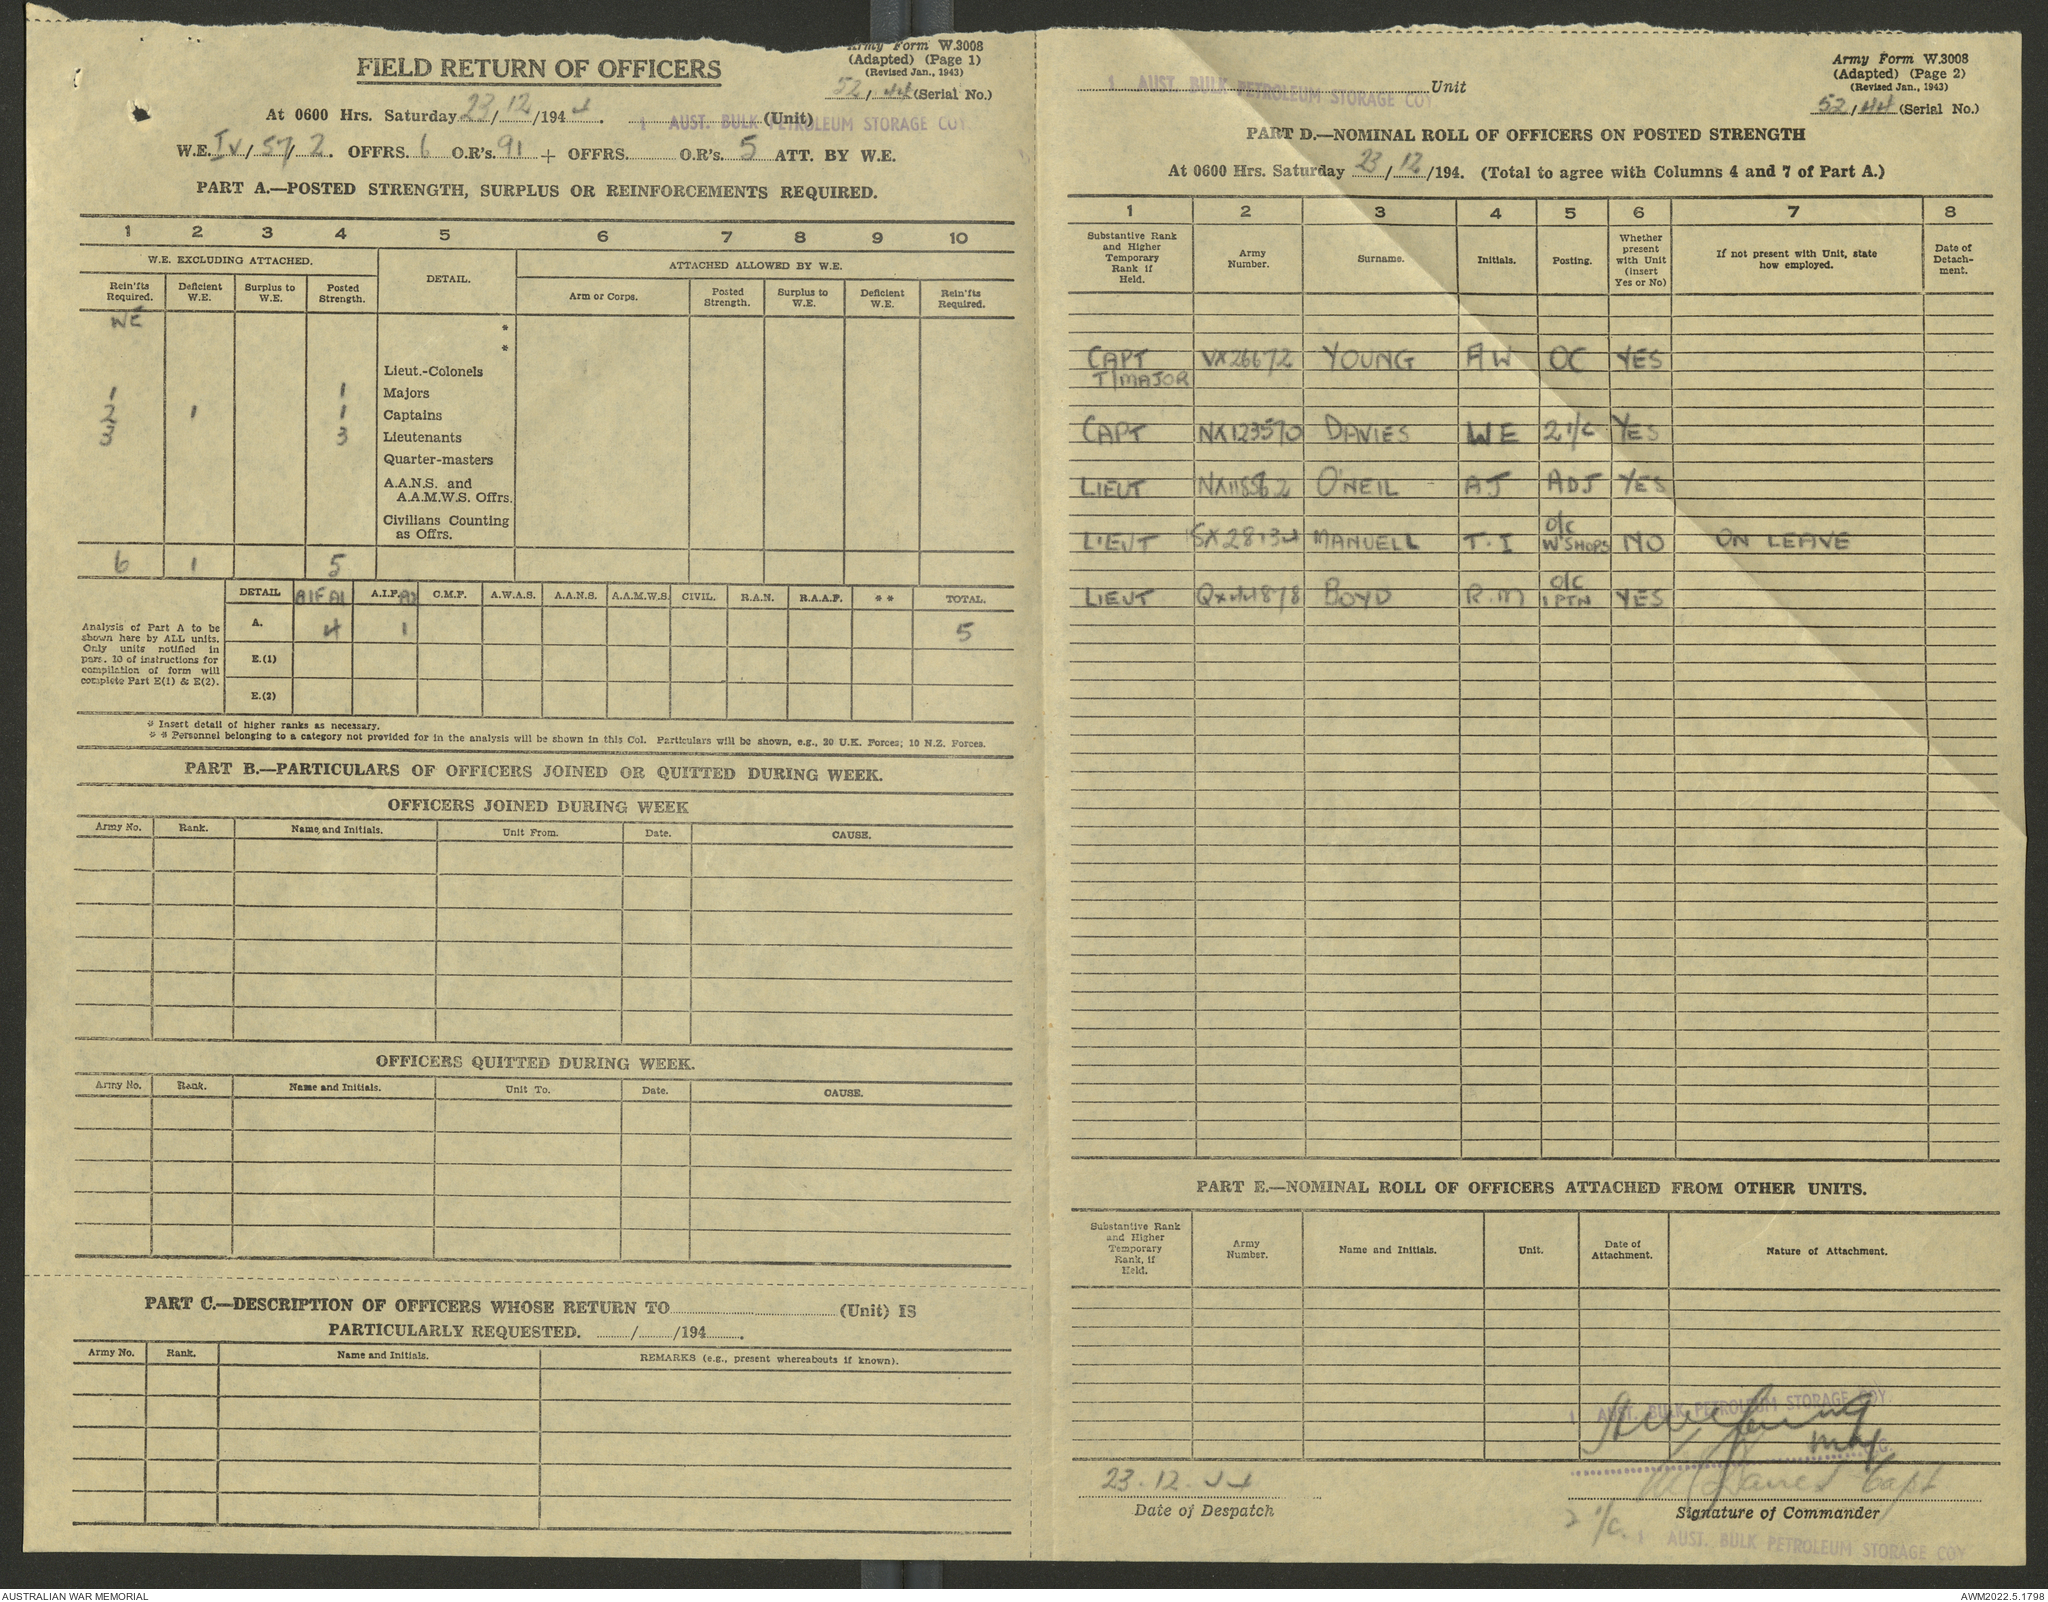 FIELD RETURN OF OFFICERS
Army Form W.3008
(Adapted) (Page 1)
(Revised Jan., 1943)
52/44 (Serial No.)
At 0600 Hrs. Saturday 23/12/1944. 1 AUST. BULK PETROLEUM STORAGE COY. (Unit)
W.E. IV/57/2. OFFRS. 6 O.R's. 91 + OFFRS. O.R's. 5 ATT. BY W.E.
PART A.—POSTED STRENGTH, SURPLUS OR REINFORCEMENTS REQUIRED.
1 2 3 4 5 6 7 8 9 10
W.E. EXCLUDING ATTACHED. DETAIL. ATTACHED ALLOWED BY W.E.
Rein'fts Required. Deficient W.E. Surplus to W.E. Posted Strength. Arm or Corps. Posted Strength. Surplus to W.E. Deficient W.E. Rein'fts Required.
WE
*
*
Lieut.-Colonels
1 1 Majors
2 1 1 Captains
3 3 Lieutenants
Quarter-masters
A.A.N.S. and
A.A.M.W.S. Offrs.
Civilians Counting
as Offrs.
6 1 5
DETAIL AIF A1 A.I.F. A2 C.M.F. A.W.A.S. A.A.N.S. A.A.M.W.S. CIVIL. R.A.N. R.A.A.F. * * TOTAL.
Analysis of Part A to be shown here by ALL units. Only units notified in para. 10 of instructions for compilation of form will complete Part E(1) & E(2).
A. 4 1 5
E.(1)
E.(2)
* Insert detail of higher ranks as necessary.
* * Personnel belonging to a category not provided for in the analysis will be shown in this Col. Particulars will be shown, e.g., 20 U.K. Forces; 10 N.Z. Forces.
PART B.—PARTICULARS OF OFFICERS JOINED OR QUITTED DURING WEEK.
OFFICERS JOINED DURING WEEK
Army No. Rank. Name and Initials. Unit From. Date. CAUSE.
OFFICERS QUITTED DURING WEEK.
Army No. Rank. Name and Initials. Unit To. Date. CAUSE.
PART C.—DESCRIPTION OF OFFICERS WHOSE RETURN TO (Unit) IS
PARTICULARLY REQUESTED. / /194 .
Army No. Rank. Name and Initials. REMARKS (e.g., present whereabouts if known).
1 AUST. BULK PETROLEUM STORAGE COY. Unit
Army Form W.3008
(Adapted) (Page 2)
(Revised Jan., 1943)
52/44 (Serial No.)
PART D.—NOMINAL ROLL OF OFFICERS ON POSTED STRENGTH
At 0600 Hrs. Saturday 23/12/194. (Total to agree with Columns 4 and 7 of Part A.)
1 2 3 4 5 6 7 8
Substantive Rank and Higher Temporary Rank if Held. Army Number. Surname. Initials. Posting. Whether present with Unit (insert Yes or No) If not present with Unit, state how employed. Date of Detach-ment.
CAPT VX26672 YOUNG AW OC YES
T/MAJOR
CAPT NX123570 DAVIES WE 2 I/C YES
LIEUT NX118562 O'NEIL AJ ADJ YES
LIEUT SX28134 MANUELL T.I o/c W'SHOPS NO ON LEAVE
LIEUT QX44878 BOYD R.M o/c 1 PTN YES
PART E.—NOMINAL ROLL OF OFFICERS ATTACHED FROM OTHER UNITS.
Substantive Rank and Higher Temporary Rank, if Held. Army Number. Name and Initials. Unit. Date of Attachment. Nature of Attachment.
1 AUST. BULK PETROLEUM STORAGE COY.
Maj
23.12.44 Capt
Date of Despatch Signature of Commander
2 I/c. 1 AUST. BULK PETROLEUM STORAGE COY
AUSTRALIAN WAR MEMORIAL
AWM2022.5.1798